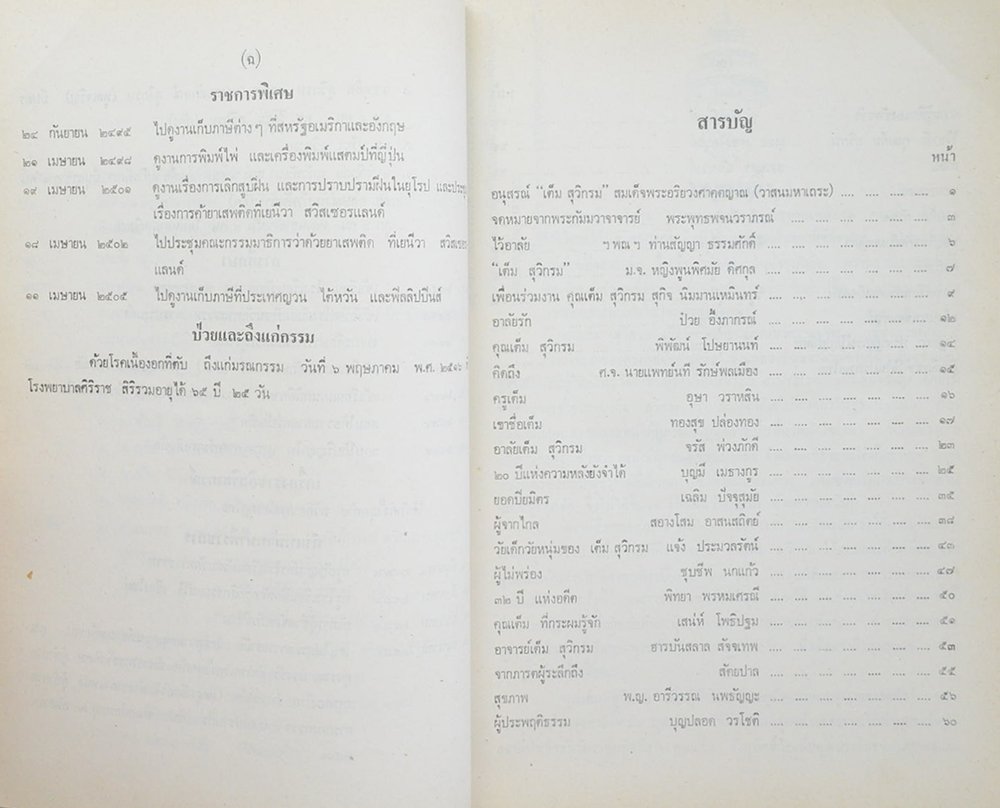 (ฉ)
ราชการพิเศษ
๒๔ กันยายน ๒๔๙๕ ไปดูงานเก็บภาษีต่างๆ ที่สหรัฐอเมริกาและอังกฤษ
๒๑ เมษายน ๒๔๙๘ ดูงานการพิมพ์ไพ่ และเครื่องพิมพ์แสตมป์ที่ญี่ปุ่น
๑๙ เมษายน ๒๕๐๑ ดูงานเรื่องการเลิกสูบฝิ่น และการปราบปรามฝิ่นในยุโรป และประชุ
เรื่องการค้ายาเสพติดที่เยนีวา สวิสเซอรแลนด์
๑๘ เมษายน ๒๕๐๒ ไปประชุมคณะกรรมมาธิการว่าด้วยยาเสพติด ที่เยนีวา สวิสเซอ
แลนด์
๑๑ เมษายน ๒๕๐๕ ไปดูงานเก็บภาษีที่ประเทศญวน ไต้หวัน และฟิลลิปปินส์
ป่วยและถึงแก่กรรม
ด้วยโรคเนื้องอกที่ตับ ถึงแก่มรณกรรม วันที่ ๖ พฤษภาคม พ.ศ. ๒๕๑๖
โรงพยาบาลศิริราช สิริรวมอายุได้ ๖๕ ปี ๒๕ วัน
สารบัญ
หน้า
อนุสรณ์ “เต็ม สุวิกรม” สมเด็จพระอริยวงศาคตญาณ (วาสนมหาเถระ) .... .... .... .... ๑
จดหมายจากพระกัมมวาจาจารย์ พระพุทธพจนวราภรณ์ .... .... .... .... .... .... ๓
ไว้อาลัย ฯพณฯ ท่านสัญญา ธรรมศักดิ์ .... .... .... .... .... .... ๖
“เต็ม สุวิกรม” ม.จ. หญิงพูนพิศมัย ดิศกุล .... .... .... .... .... .... .... ๗
เพื่อนร่วมงาน คุณเต็ม สุวิกรม สุกิจ นิมมานเหมินทร์ .... .... .... .... .... .... .... ๙
อาลัยรัก ป๋วย อึ๊งภากรณ์ .... .... .... .... .... .... .... ๑๒
คุณเต็ม สุวิกรม พิพัฒน์ โปษยานนท์ .... .... .... .... .... .... .... ๑๔
คิดถึง ศ.จ. นายแพทย์นที รักษ์พลเมือง .... .... .... .... .... .... .... ๑๕
ครูเต็ม อุษา วราหสิน .... .... .... .... .... .... .... ๑๖
เขาชื่อเต็ม ทองสุข ปล่องทอง .... .... .... .... .... .... .... ๑๗
อาลัยเต็ม สุวิกรม จรัส พ่วงภักดี .... .... .... .... .... .... .... ๒๓
๒๐ ปีแห่งความหลังยังจำได้ บุญมี เมธางกูร .... .... .... .... .... .... .... ๒๕
ยอดปิยมิตร เฉลิม ปัจจุสมัย .... .... .... .... .... .... .... ๓๕
ผู้จากไกล สอางโสม อาสนสถิตย์ .... .... .... .... .... .... .... ๓๘
วัยเด็กวัยหนุ่มของ เต็ม สุวิกรม แจ้ง ประมวลรัตน์ .... .... .... .... .... .... .... ๔๓
ผู้ไม่พร่อง ชุบชีพ นกแก้ว .... .... .... .... .... .... .... ๔๗
๓๒ ปี แห่งอดีต พิทยา พรหมเศรณี .... .... .... .... .... .... .... ๕๐
คุณเต็ม ที่กระผมรู้จัก เสน่ห์ โพธิปฐม .... .... .... .... .... .... .... ๕๑
อาจารย์เต็ม สุวิกรม ฮารบันสลาล สัจจเทพ .... .... .... .... .... .... .... ๕๓
จากภารตผู้ระลึกถึง สัตยปาล .... .... .... .... .... .... .... ๕๕
สุขภาพ พ.ญ. อารีวรรณ นพธัญญะ .... .... .... .... .... .... .... ๕๖
ผู้ประพฤติธรรม บุญปลอด วรโชติ .... .... .... .... .... .... .... ๖๐